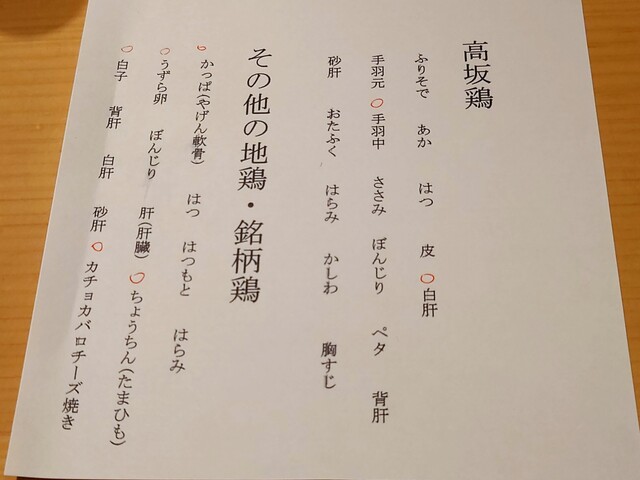 高坂鶏
ふりそで　あか　はつ　皮　白肝
手羽元　手羽中　ささみ　ぼんじり　ペタ　背肝
砂肝　おたふく　はらみ　かしわ　胸すじ
その他の地鶏・銘柄鶏
かっぱ(やげん軟骨)　はつ　はつもと　はらみ
うずら卵　ぼんじり　肝(肝臓)　ちょうちん(たまひも)
白子　背肝　白肝　砂肝　カチョカバロチーズ焼き